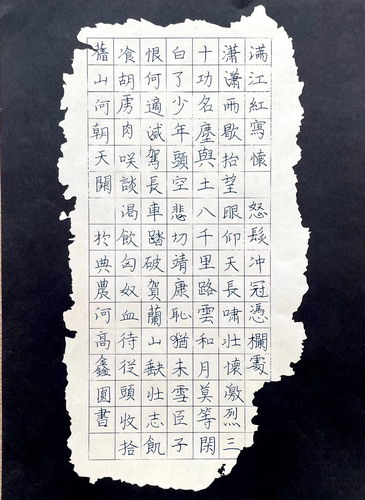 滿江紅寫懷 怒髮冲冠憑欄處
瀟瀟雨歇抬望眼仰天長嘯壮懷激烈三
十功名塵與土八千里路雲和月莫等閑
白了少年頭空悲切靖康恥猶未雪臣子
恨何適滅駕長車踏破賀蘭山缺壮志飢
飡胡虜肉咲談渴飲匈奴血待從頭收拾
舊山河朝天闕 於典農河高鑫圖書